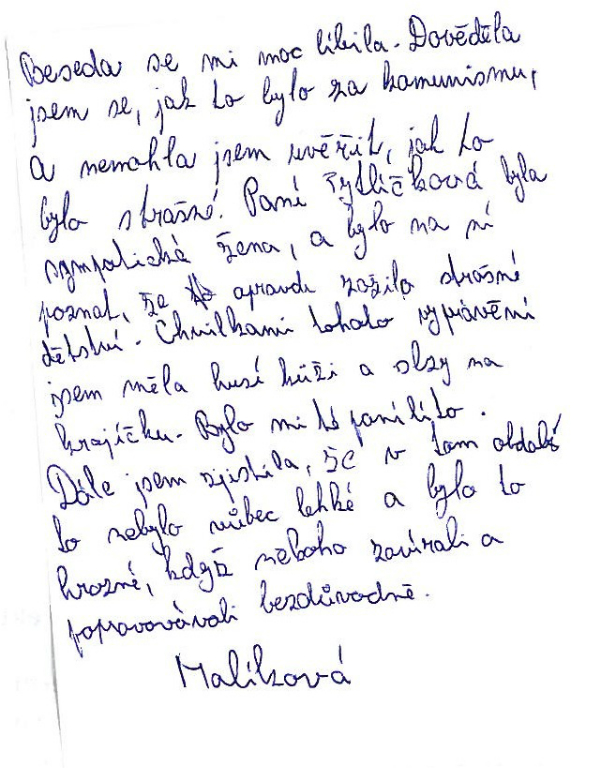 Beseda se mi moc líbila. Dověděla
jsem se, jak to bylo za komunismu,
a nemohla jsem uvěřit, jak to
bylo strašné. Paní Rytlíčková byla
sympatická žena, a bylo na ní
poznat, že opravdu zažila strašné
dětství. Chvilkami tohoto vyprávění
jsem měla husí kůži a slzy na
krajíčku. Bylo mi té paní líto.
Dále jsem zjistila, že v tom období
to nebylo vůbec lehké a bylo to
hrozné, když někoho zavírali a
popravovávali bezdůvodně.
Malíková